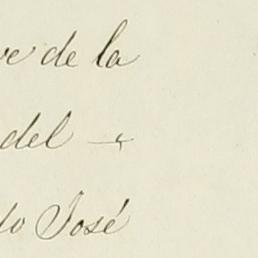 de la
del
José